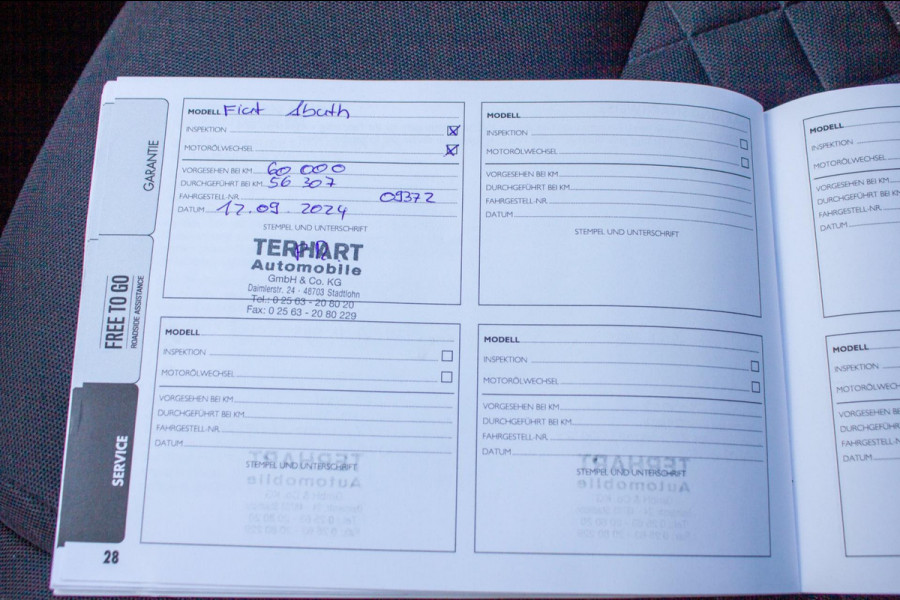 GARANTIE
FREE TO GO
ROADSIDE ASSISTANCE
SERVICE
MODELL Fiat Abarth
INSPEKTION
MOTORÖLWECHSEL
VORGESEHEN BEI KM 60 000
DURCHGEFÜHRT BEI KM 56 307
FAHRGESTELL-NR. 09372
DATUM 12.09.2024
STEMPEL UND UNTERSCHRIFT
TERHART
Automobile
GmbH & Co. KG
Daimlerstr. 24 - 48703 Stadtlohn
Tel.: 0 25 63 - 20 80 20
Fax: 0 25 63 - 20 80 229
MODELL
INSPEKTION
MOTORÖLWECHSEL
VORGESEHEN BEI KM
DURCHGEFÜHRT BEI KM
FAHRGESTELL-NR.
DATUM
STEMPEL UND UNTERSCHRIFT
MODELL
INSPEKTION
MOTORÖLWECHSEL
VORGESEHEN BEI KM
DURCHGEFÜHRT BEI KM
FAHRGESTELL-NR.
DATUM
STEMPEL UND UNTERSCHRIFT
MODELL
INSPEKTION
MOTORÖLWECHSEL
VORGESEHEN BEI KM
DURCHGEFÜHRT BEI KM
FAHRGESTELL-NR.
DATUM
STEMPEL UND UNTERSCHRIFT
28
MODELL
INSPEKTION
MOTORÖLWECHSEL
VORGESEHEN BEI KM
DURCHGEFÜHR
FAHRGESTELL-NR.
DATUM
MODELL
INSPEKTION
MOTORÖLWECH
VORGESEHEN BE
DURCHGEFÜHR
FAHRGESTELL-N
DATUM